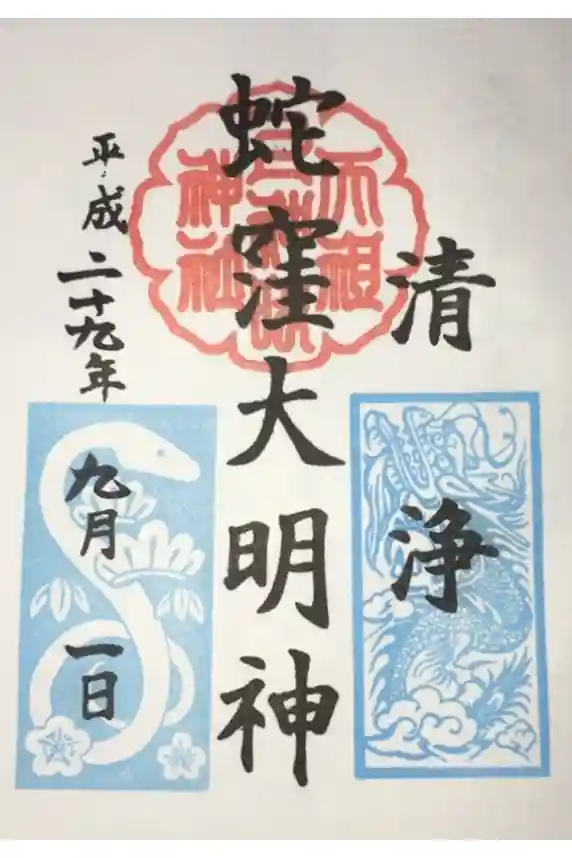 清浄
蛇窪大明神
平成二十九年九月一日
天祖
神社